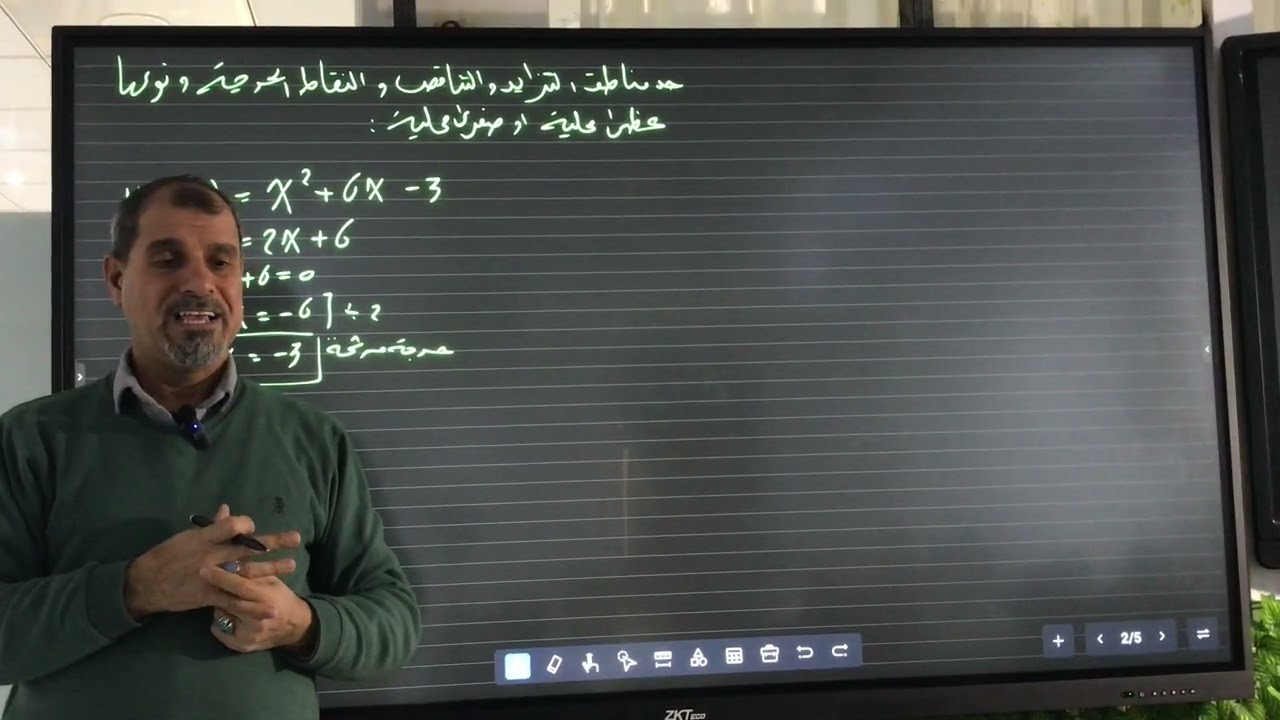 حدد مناطق التزايد والتناقص و النقاط الحرجة و نوعها
عظمى محلية او صغرى محلية :
= x² + 6x - 3
= 2x + 6
+6 = 0
= -6 ] ÷ 2
= -3
2/5
ZKTeco